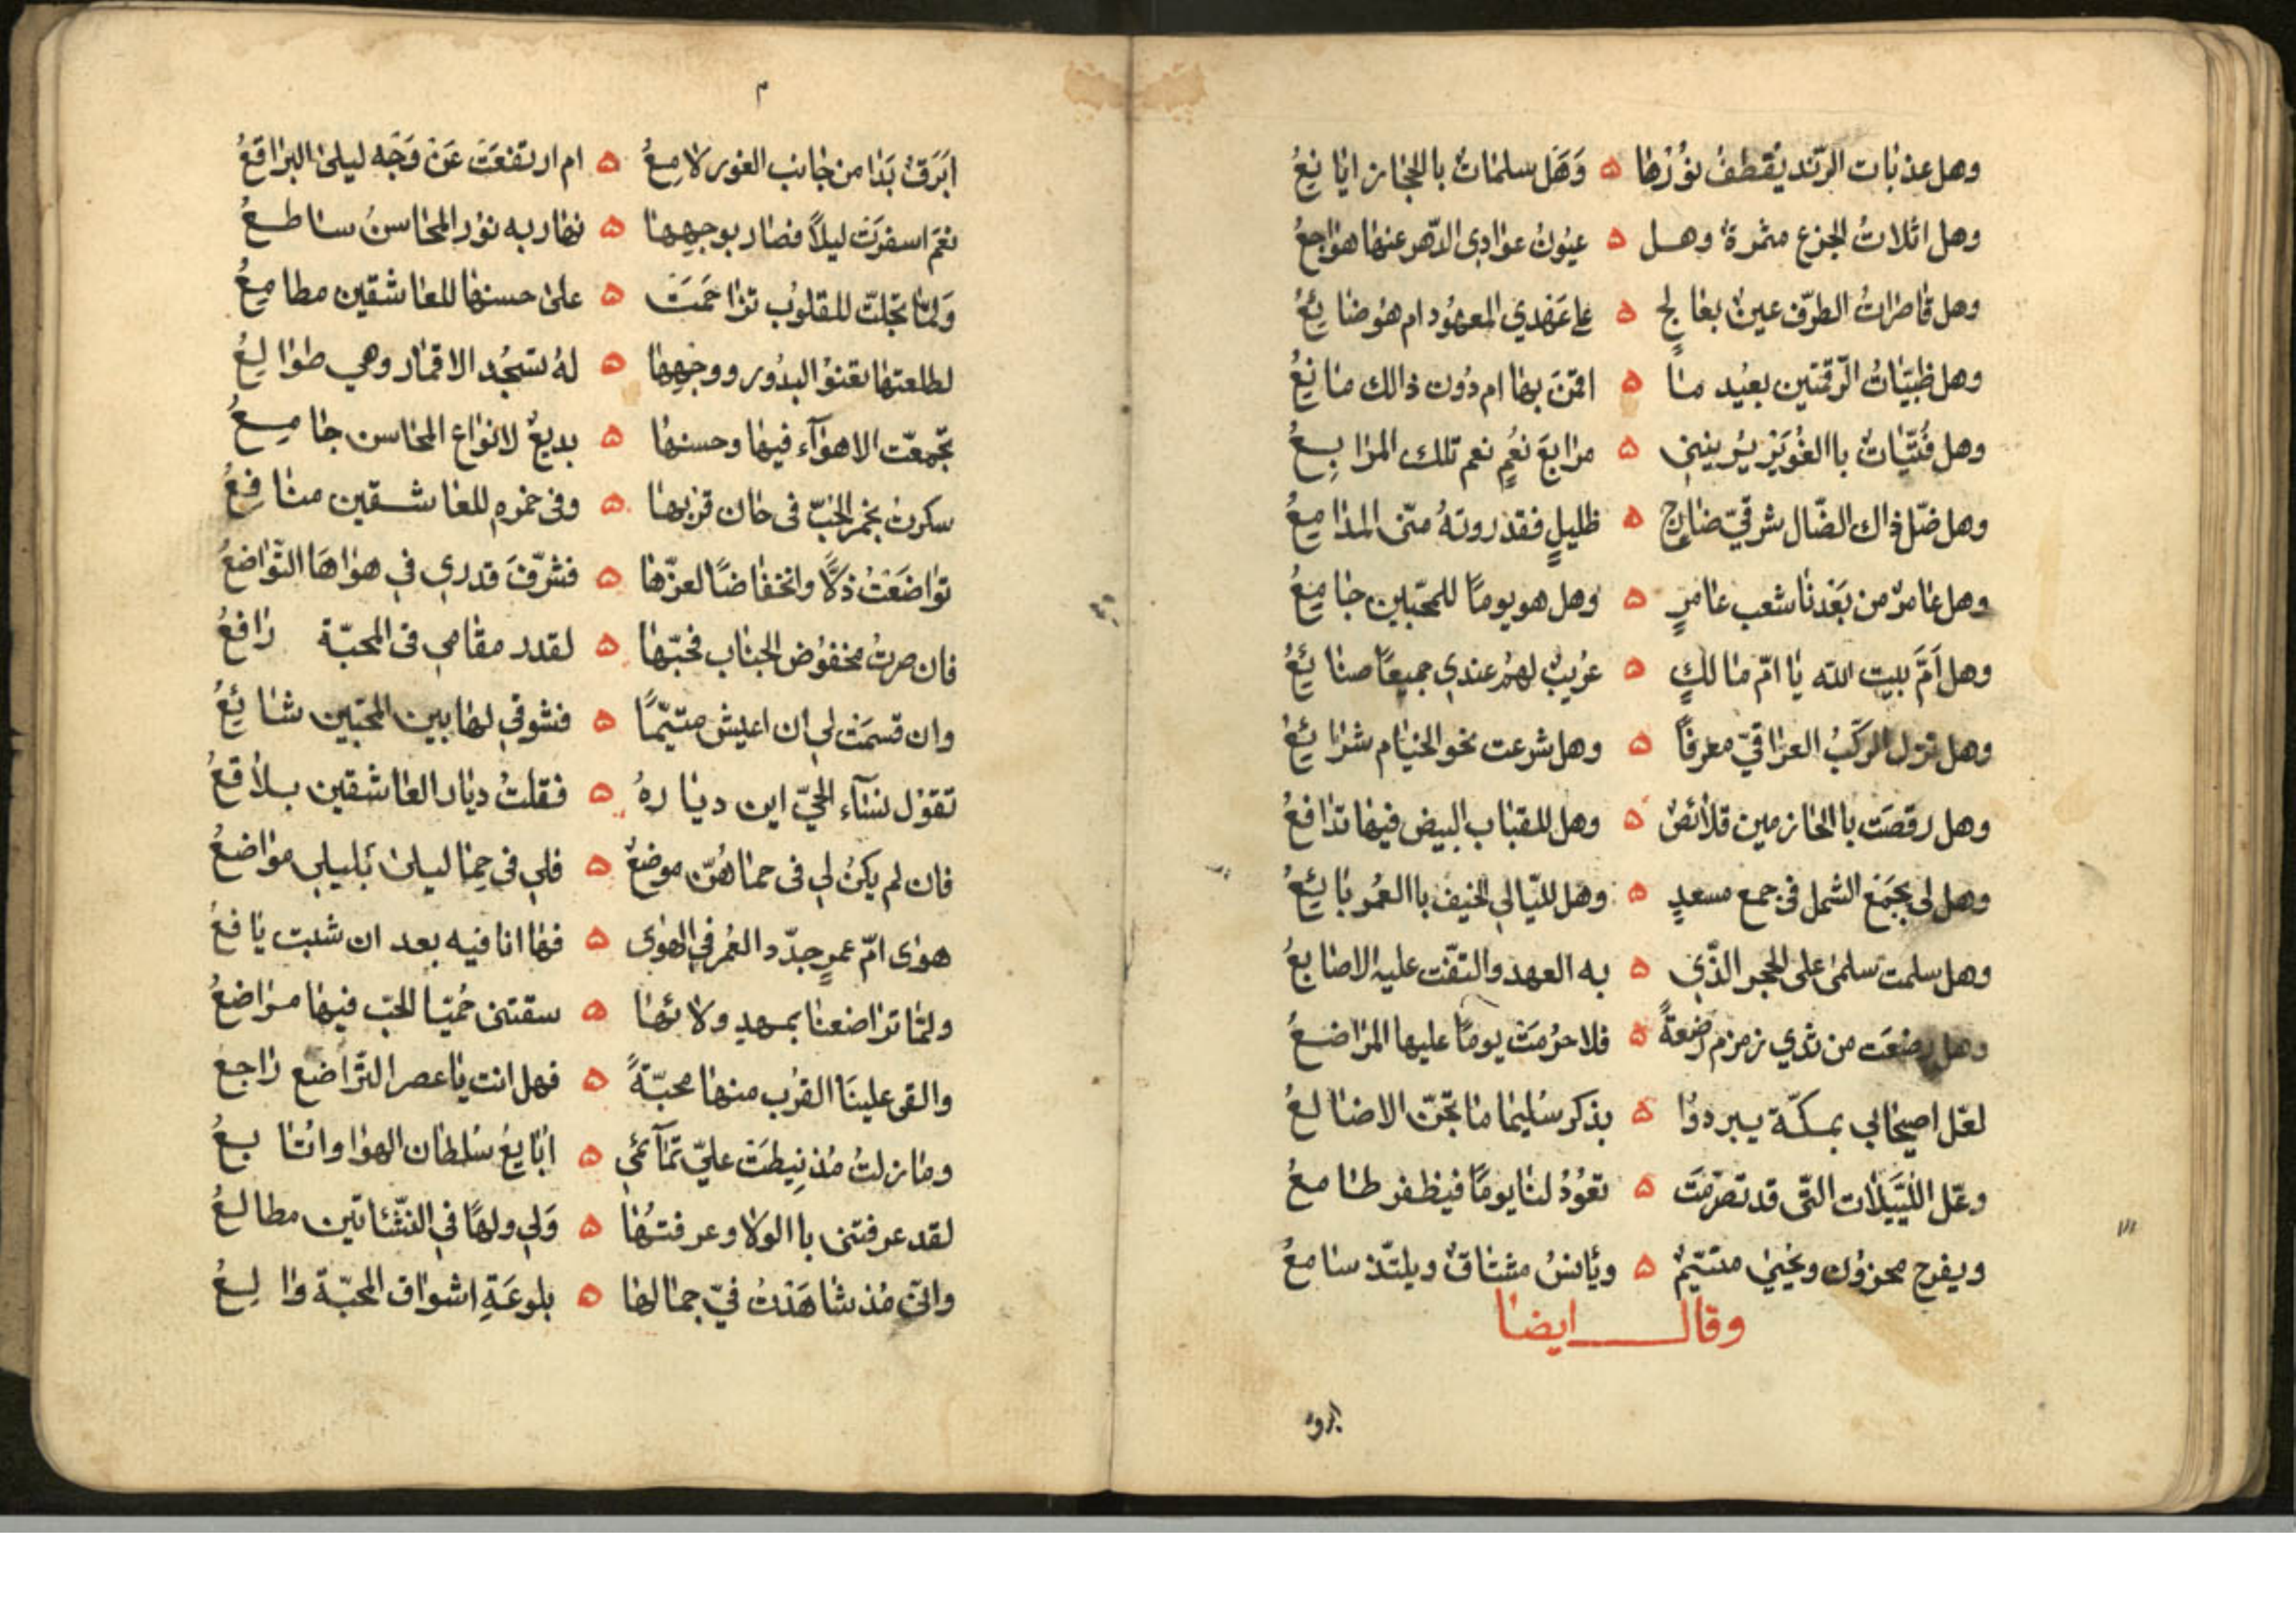 وهل عذبات الرّند يُقطفُ نوُرُها ه وَهَل سلمات باالحجاز ايانعُ
وهل اثلاتُ الجزع مثمرة وهل ه عيُونُ عوادي الدّهر عنها هواجعُ
وهل قاصرات الطرّف عين بعالجٍ ه على عَهدي المعهُود ام هُو ضائعُ
وهل ظبيَاتُ الرّقمتين بعيُد منا ه اقمَن بها ام دُون ذالك مانعُ
وهل فُتيَات باالغُوَير يُرينني ه مرابعَ نعُمٍ نعم تلك المرابعُ
وهل ضلّ ذاك الضّال شرقيّ ضارجٍ ه ظليلٍ فقد روتهُ منّى المدامعُ
وهل عامرٌ من بَعْدنا شعب عامرٍ ه وهل هو يومًا للمحبّين جامعُ
وهل اَمَّ بيت الله يا امّ مالكٍ ه عُريبٌ لهمُ عندي جميعًا صنائعُ
وهل نزل الركَبُ العراقيّ معرفًا ه وهل شرعت نحو الخيام شرائعُ
وهل رقصَت باالمازمين قلائصٌ ه وهل للقباب البيض فيها تدافعُ
وهل لى بجَمَع الشمل فى جمع مسعدٍ ه وهل لليّالي الخيف باالعُمر بايعُ
وهل سلمت سلمى على الحجر الذّي ه به العهد والتفّت عليه الاصابعُ
وهل رضعَت من ثدي زمزم رضعةً ه فلا حرُمَت يومًا عليها المراضعُ
لعّل اصيحابي بمكّة يبردوُا ه بذكر سُليما ما تجنّ الاضالعُ
وعّل اللُيَيلات التّى قد تصرّمَت ه تعوُدُ لنا يومًا فيظفر طامعُ
ويفرح محزوُن ويَحيي متيّمٌ ه ويأنسُ مشتاقٌ ويلتّذ سامعُ
وقال ايضا
ابرقٌ
٣
ابَرَقٌ بَدَا من جانب الغور لامعُ ه ام ارتفعَت عَنْ وَجَه ليلى البراقعُ
نعَمَ اسفرَت ليلاً فصار بوجهها ه نهار به نوُر المحاسنُ ساطعُ
وَلمّا تجلّت للقلوُب تزاحمَتَ ه على حسنها للعاشقين مطامعُ
لطلعتها تعنوُ البدُور ووجهها ه لهُ تسجُد الاقمار وهي طوالعُ
تجّمعّت الاهوَآء فيها وحسنها ه بديعٌ لانواع المحاسن جامعُ
سكرتُ بخمر الحُبّ فى حان قربها ه وفى خمره للعاشقين منافعُ
تواضَعْتُ ذلاً وانخفاضًا لعزّها ه فشرّفَ قدري في هواهَا التّواضعُ
فان صرتُ مخفوُض الجناب فحبّها ه لقدر مقامي فى المحبّة رافعُ
وان قسمَت لي ان اعيش متيّمًا ه فشوقي لها بين المحبّين شائعُ
تقوُل نسآء الحيّ اين دياره ه فقلتُ ديار العاشقين بلاقعُ
فان لم يكنُ لي فى حماهُنّ موضعٌ ه فلي فى حِما ليلى بَليلي مواضعُ
هوى امّ عمرٍ جدّد العُمر في الهوى ه فها انا فيه بعد ان شبت يافعُ
ولمّا تراضعنا بمهدِ ولائها ه سقتنى حُميّا الحبّ فيها مراضعُ
والقى علينَا القرُب منها محبّةً ه فهل انت يا عصر التّراضع راجع
وما زلتُ مُذ نِيطَت عليّ تمآئمي ه ابايعُ سُلطان الهوا واتابعُ
لقد عرفتنى باالولا وعرفتُها ه وَلي ولها في النّشأتين مطالعُ
وانّى مُذ شاهَدتُ فيّ جمالها ه بلوعَةِ اشواق المحبّة والعُ